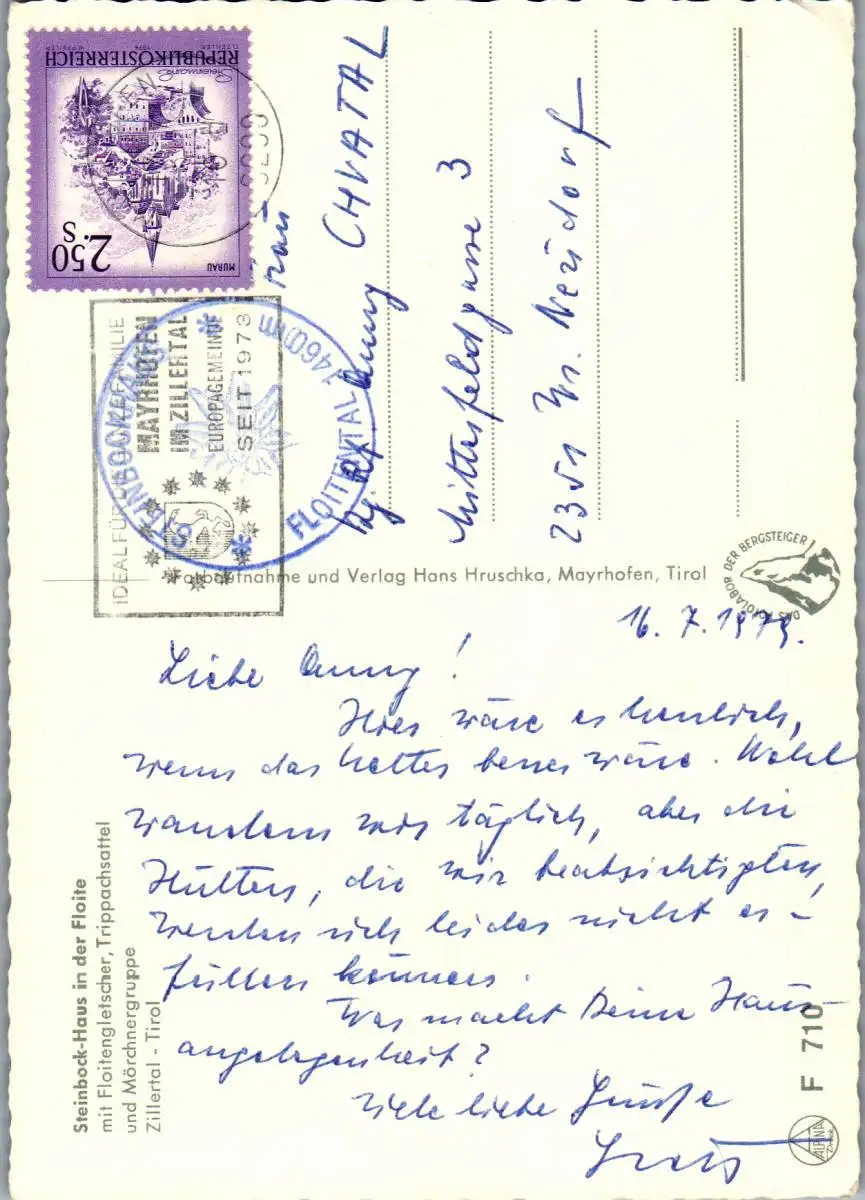 REPUBLIK ÖSTERREICH
2.50
S
MURAU
6290
STEINBOCKHAUS
FLOITENTAL 1460m
IDEAL FÜR DIE FAMILIE
MAYRHOFEN
IM ZILLERTAL
EUROPAGEMEINDE
SEIT 1973
Frau
Anny CHVATAL
Mitterfeldgasse 3
2351 Wr. Neudorf
Farbaufnahme und Verlag Hans Hruschka, Mayrhofen, Tirol
DAS FOTOLABOR DER BERGSTEIGER
16.7.1979.
Liebe Anny!
Hier wäre es herrlich,
wenn das Wetter besser wäre. Wohl
wandern wir täglich, aber die
Hütten, die wir beabsichtigten,
werden sich leider nicht er-
füllen können.
Was macht Deine Haus-
angelegenheit?
Viele liebe Grüße
Steinbock-Haus in der Floite
mit Floitengletscher, Trippachsattel
und Mörchnergruppe
Zillertal - Tirol
F 710
ALPINA